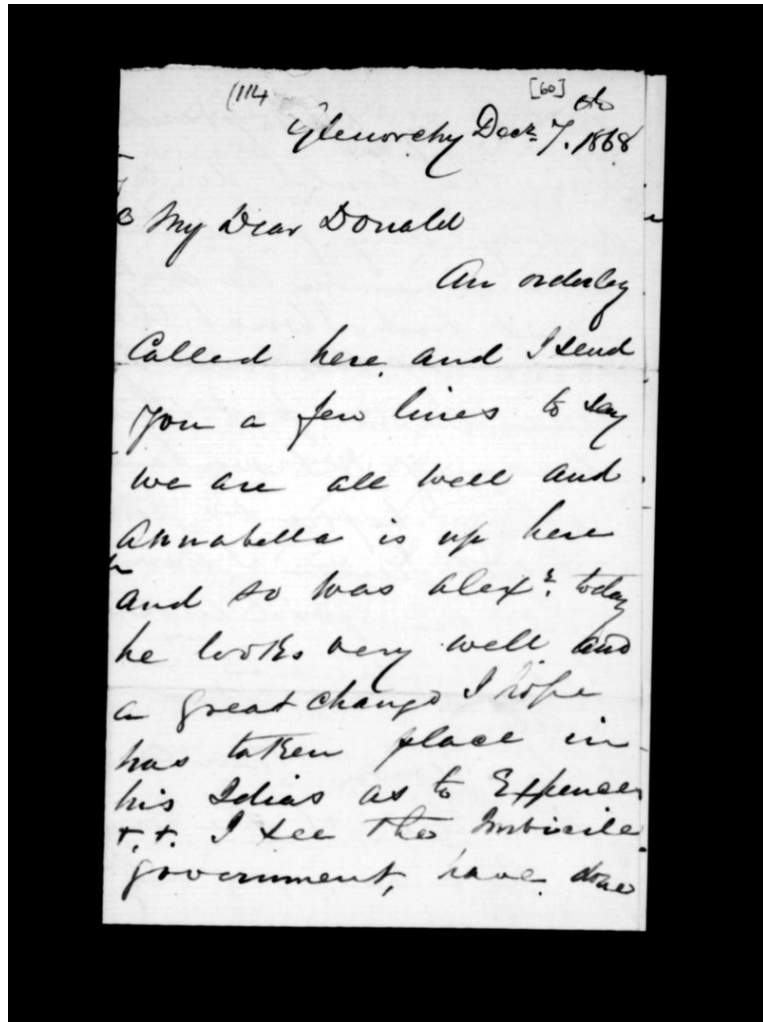 (114
[60]
Glenorchy Decr 7. 1868
My Dear Donald
An orderley
Called here and I send
you a few lines to say
we are all well and
Annabella is up here
and so was Alexr. today
he looks very well and
a great change I hope
has taken place in
his Idias as to Expences
+. +. I see the Imbicile
government, have done